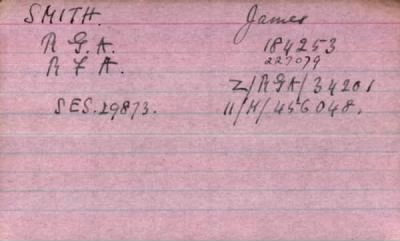 SMITH. James
R G.A. 184253
R F A. 227079
Z/RGA/34201
SES.29873. 11/M/456048.